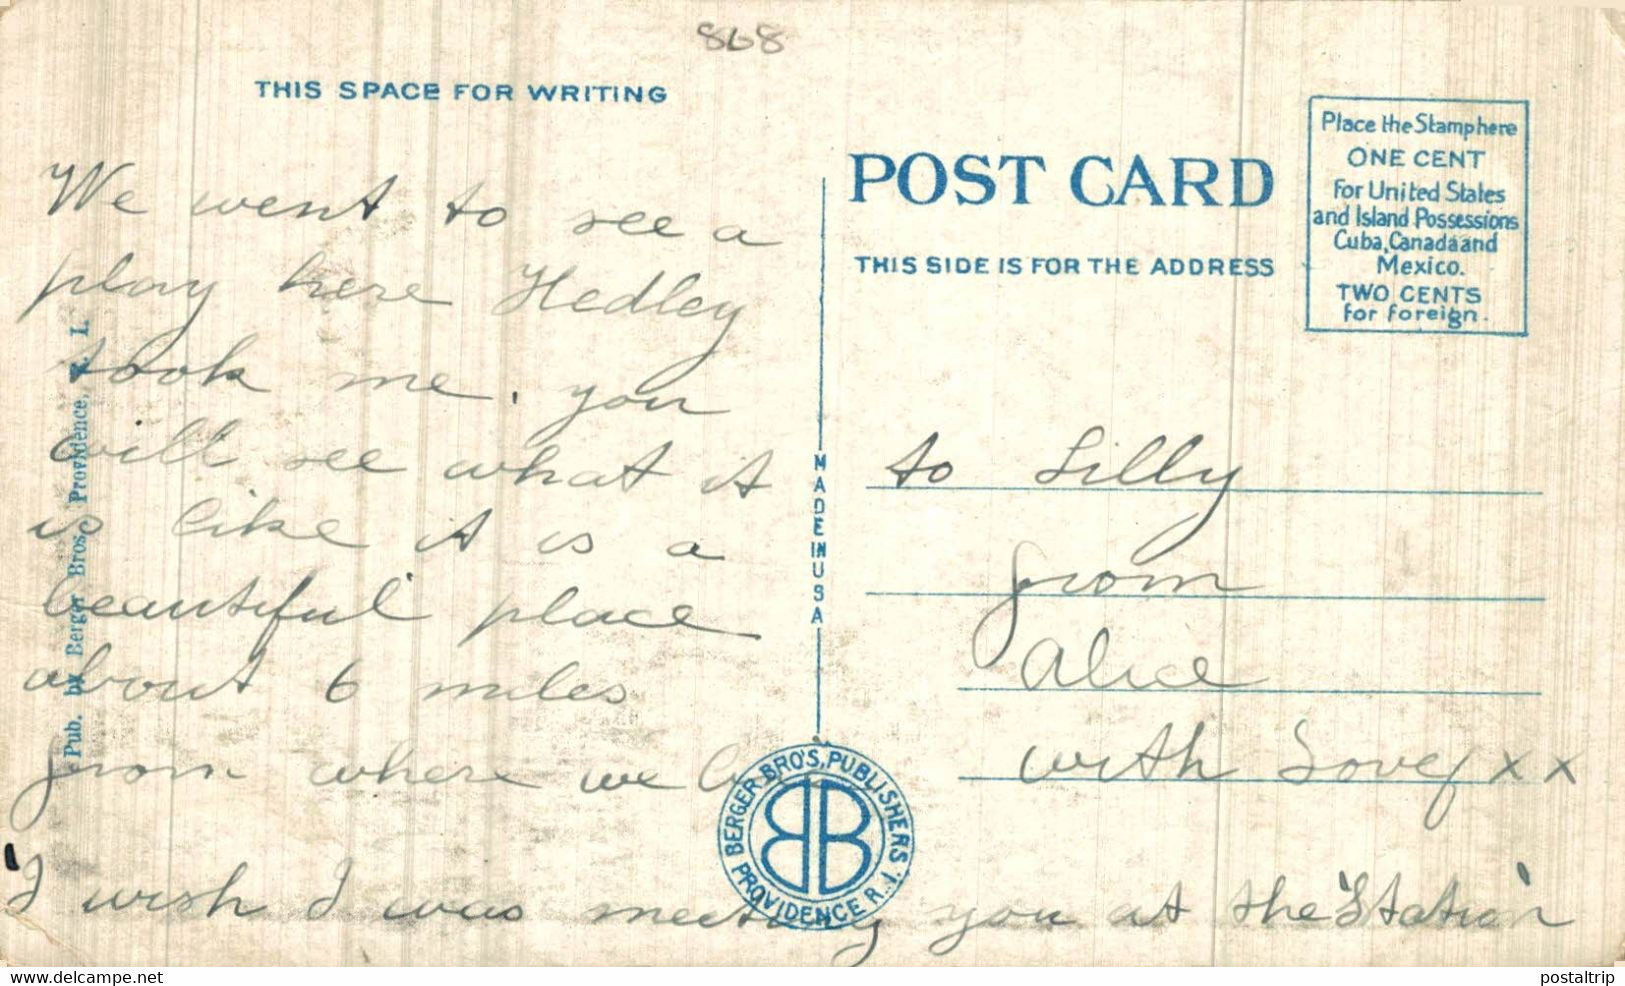 868
THIS SPACE FOR WRITING
We went to see a
play here Hedley
took me. you
will see what it
is like it is a
beautiful place
about 6 miles
from where we
I wish I was meeting you at the "Station"
Pub. by Berger Bros., Providence, R. I.
MADE IN USA
BERGER BRO'S, PUBLISHERS
PROVIDENCE R.I.
BB
POST CARD
THIS SIDE IS FOR THE ADDRESS
Place the Stamp here
ONE CENT
For United States
and Island Possessions
Cuba, Canada and
Mexico.
TWO CENTS
for foreign.
to Lilly
from
Alice
with Love x x
www.delcampe.net
postaltrip